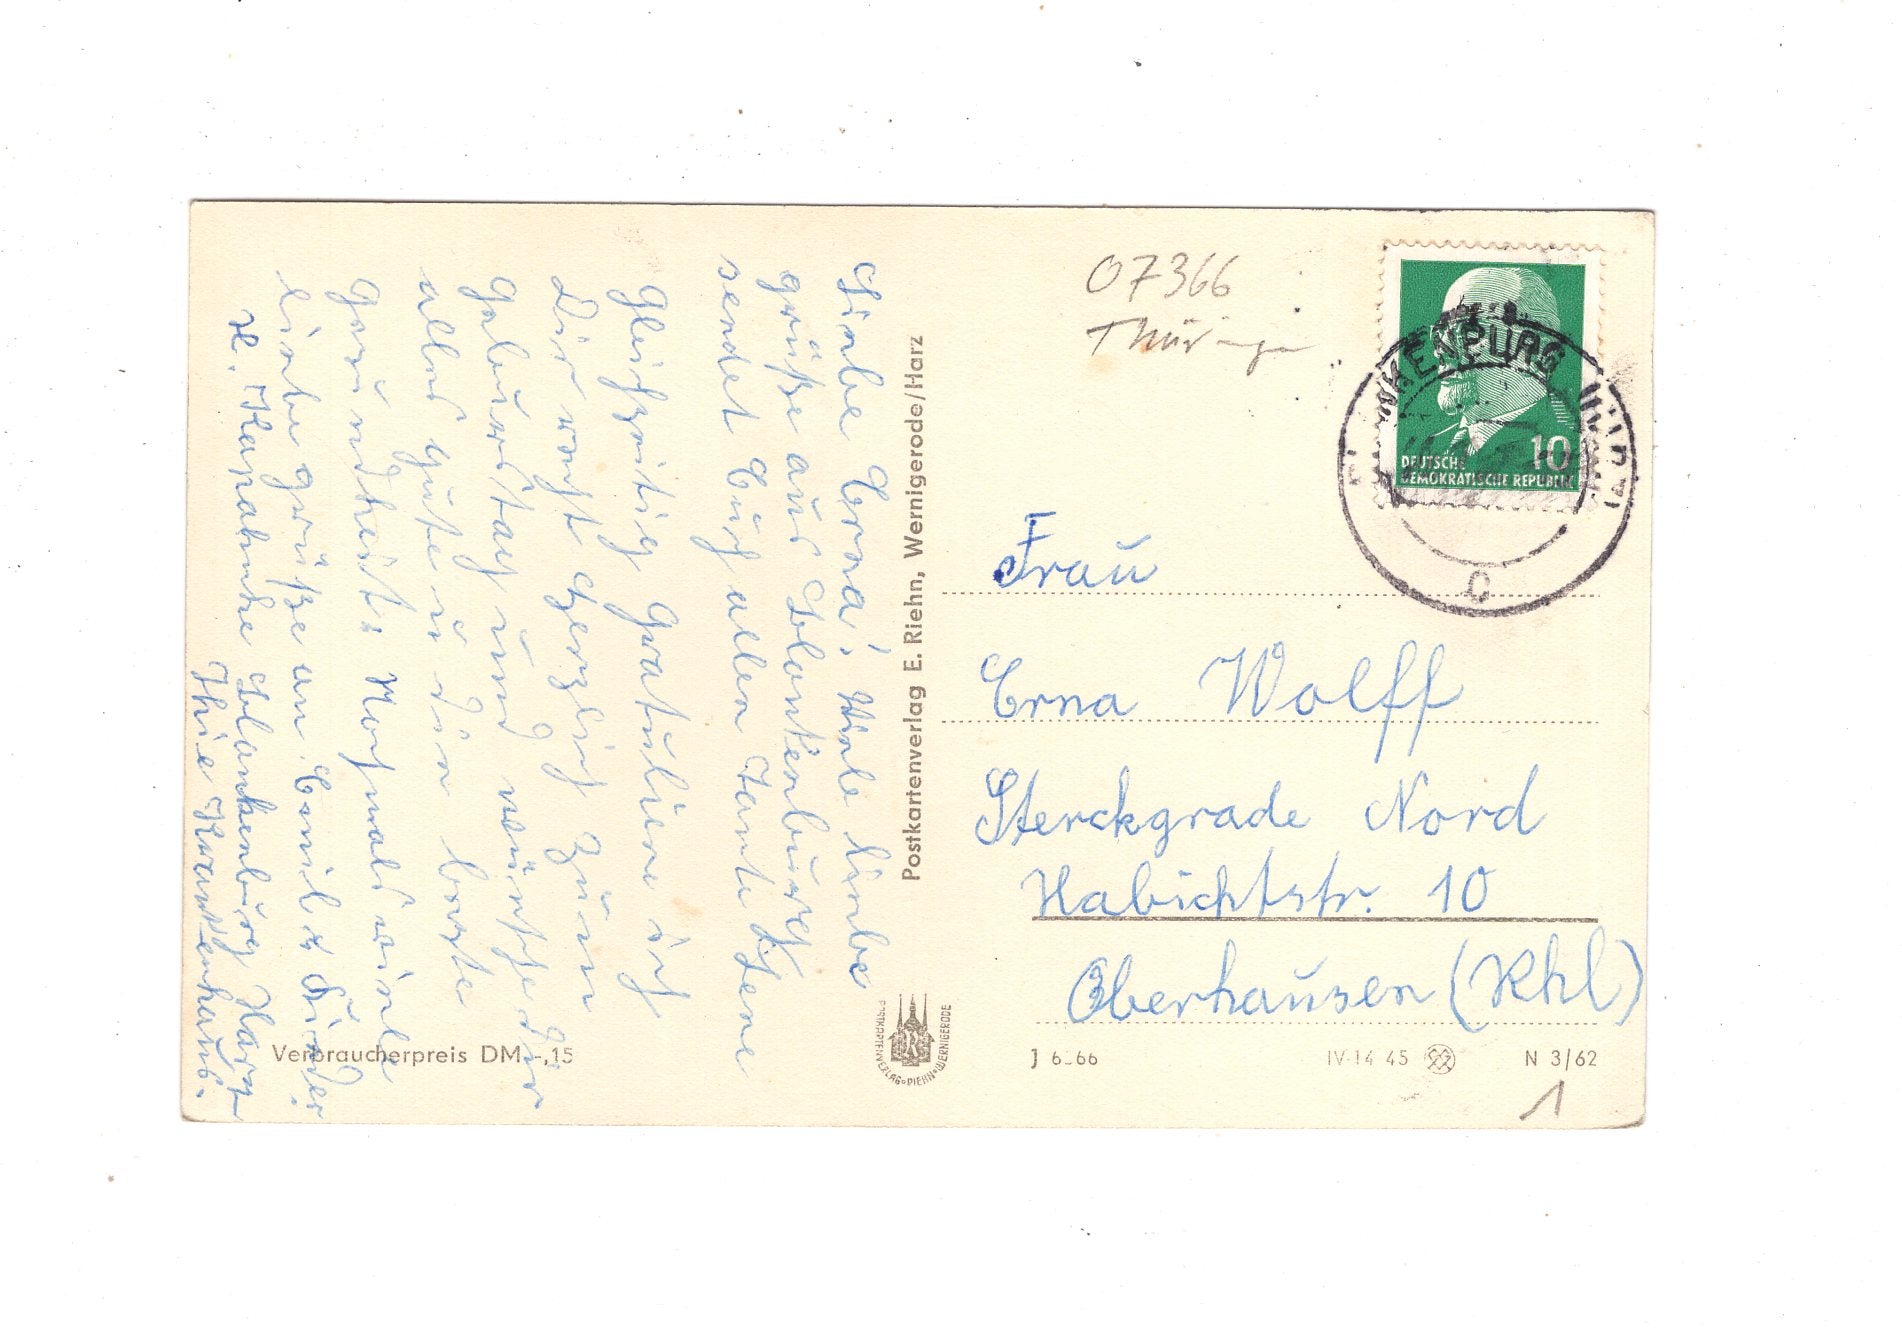 Liebe Erna! Viele liebe
grüße aus Blankenburg
sendet Euch allen Tante Lene
Gleichzeitig gratuliere ich
Dir recht herzlich zum
Geburtstag und wünsche Dir
alles gute u. die beste
Gesundheit. Nochmals viele
liebe grüße an Emil u. Kinder.
Blankenburg Harz
Thie Krankenhaus.
Verbraucherpreis DM -,15
Postkartenverlag E. Riehn, Wernigerode/Harz
POSTKARTENVERLAG RIEHN WERNIGERODE
07366
Thüringen
10
DEUTSCHE
DEMOKRATISCHE REPUBLIK
C
Frau
Erna Wolff
Sterckgrade Nord
Habichtstr. 10
Oberhausen (Rhl)
IV-14-45
N 3/62
1